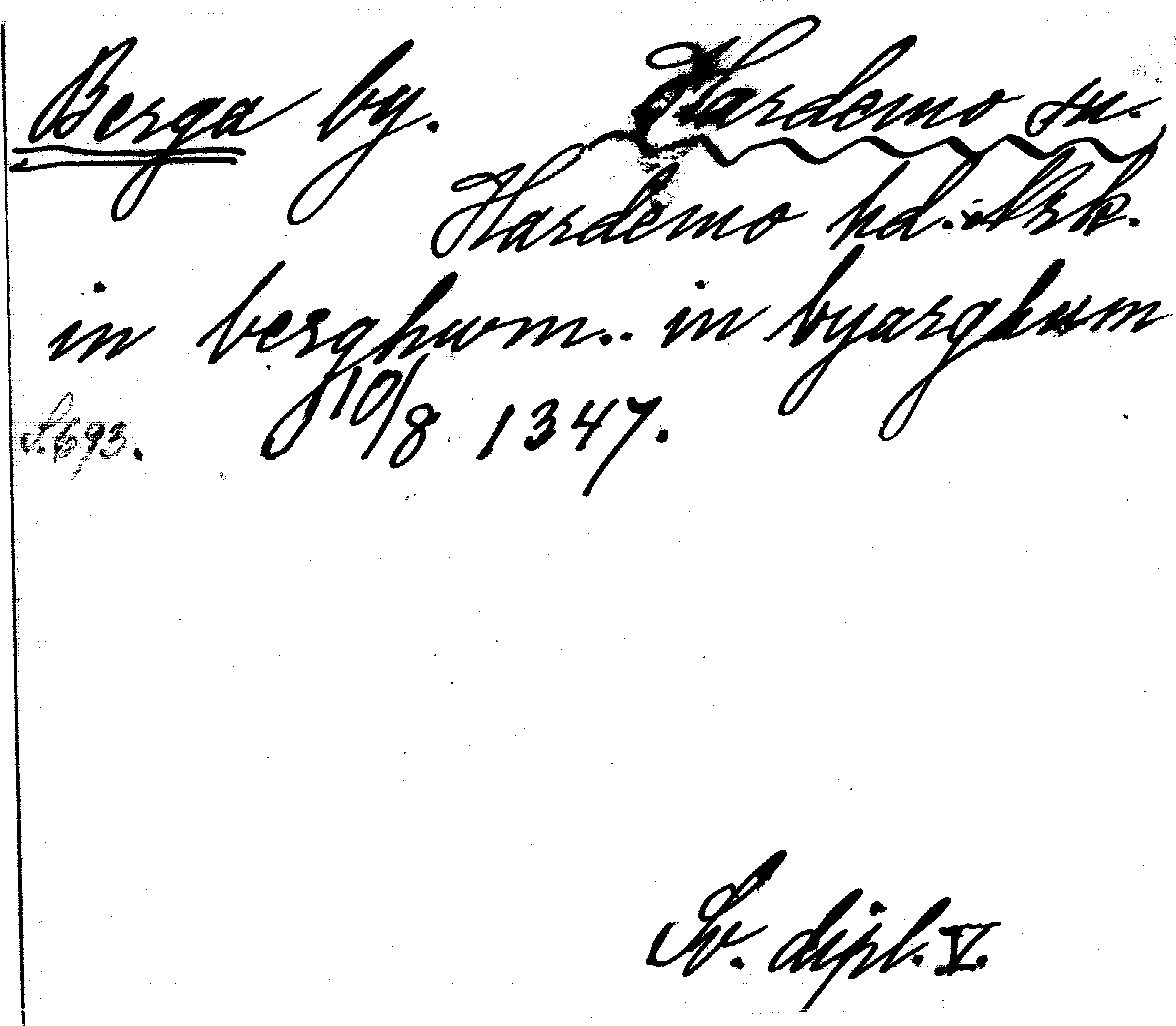 Berga by. Hardemo sn.
Hardemo hd. Nrk.
in berghum.. in byarghum
10/8 1347.
S. 693.
Sv. dipl. V.